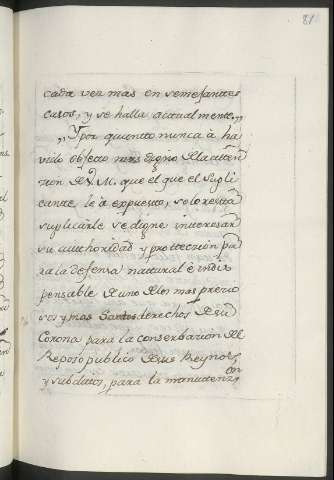 81
cada vez mas en semejantes
casos, y se halla actualmente„
„Y por quanto nunca à ha
vido objecto mas digno de la atten
cion de V. M. que el que el supli
cante le à expuesto, solo resta
suplicarle se digne interesar
su authoridad y proteccion pa
ra la defensa natural è indis
pensable de uno de los mas precio
sos y mas Santos derechos de su
Corona para la conserbacion del
Reposo publico de sus Reynos,
y subditos, para la manutenz.on